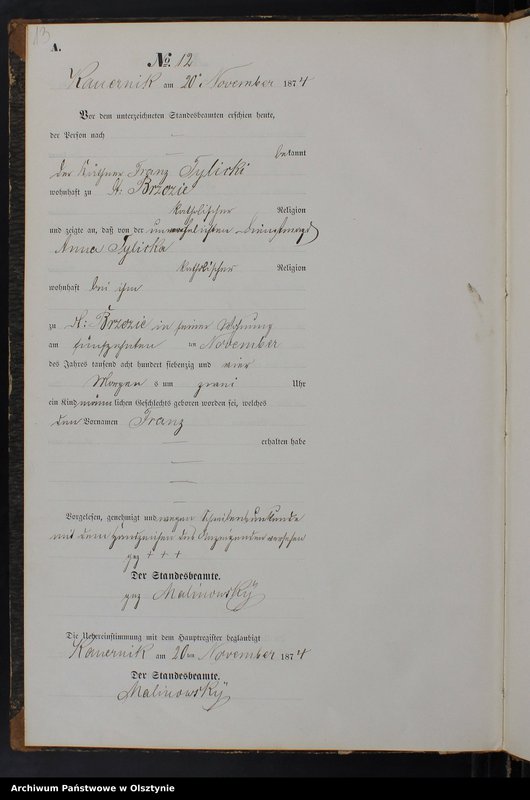 13
A.
No. 12
Kauernik am 20ten November 1874
Vor dem unterzeichneten Standesbeamten erschien heute,
der Person nach
bekannt
der Käthner Franz Tylicki
wohnhaft zu Kl: Brzozie
katholischer Religion
und zeigte an, daß von der unverehelichten Dienstmagd
Anna Tylicka
katholischer Religion
wohnhaft bei ihm
zu Kl: Brzozie in seiner Wohnung
am fünfzehnten ten November
des Jahres tausend acht hundert siebenzig und vier
Morgens um zwei Uhr
ein Kind männlichen Geschlechts geboren worden sei, welches
den Vornamen Franz
erhalten habe
Vorgelesen, genehmigt und wegen Schreibensunkunde
mit dem Handzeichen des Anzeigenden versehen
gez + + +
Der Standesbeamte.
gez Malinowsky
Die Uebereinstimmung mit dem Hauptregister beglaubigt
Kauernik am 20ten November 1874
Der Standesbeamte.
Malinowsky
Archiwum Państwowe w Olsztynie